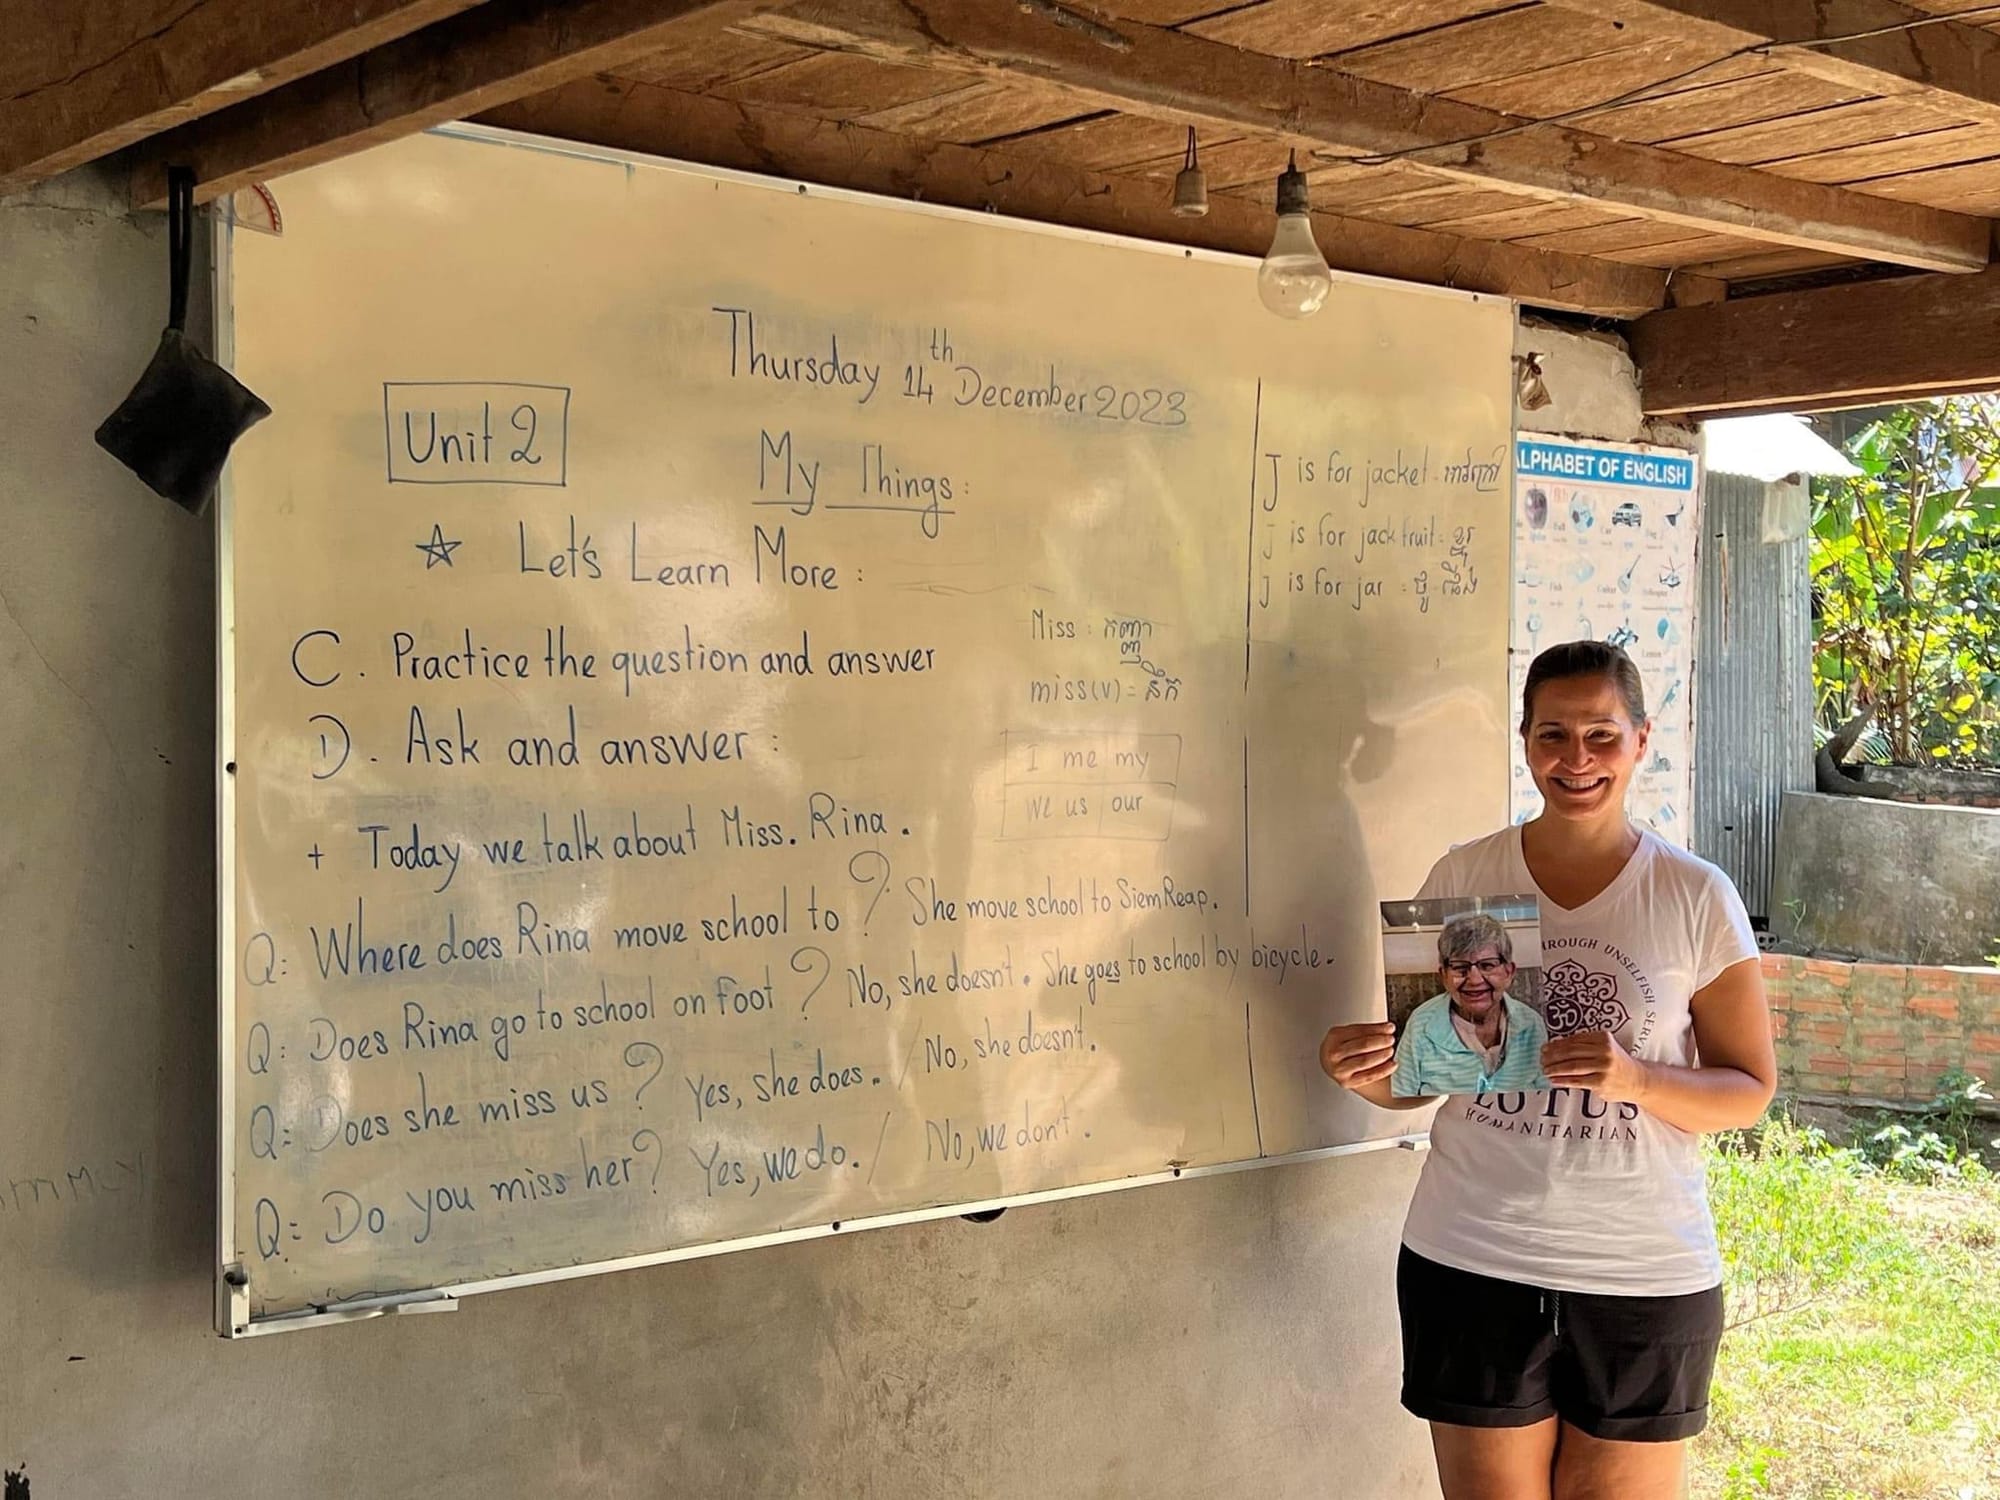 Thursday 14th December 2023
Unit 2
My Things:
☆ Let's Learn More:
C. Practice the question and answer
D. Ask and answer:
+ Today we talk about Miss. Rina.
Q: Where does Rina move school to? She move school to Siem Reap.
Q: Does Rina go to school on foot? No, she doesn't. She goes to school by bicycle.
Q: Does she miss us? Yes, she does. / No, she doesn't.
Q: Do you miss her? Yes, we do. / No, we don't.
Miss : កញ្ញា
ញ្ញ
miss(v) = នឹក
I me my
we us our
J is for jacket - អាវក្រៅ
J is for jack fruit = ខ្នុរ
J is for jar =
ALPHABET OF ENGLISH
THROUGH UNSELFISH
LOTUS
HUMANITARIAN